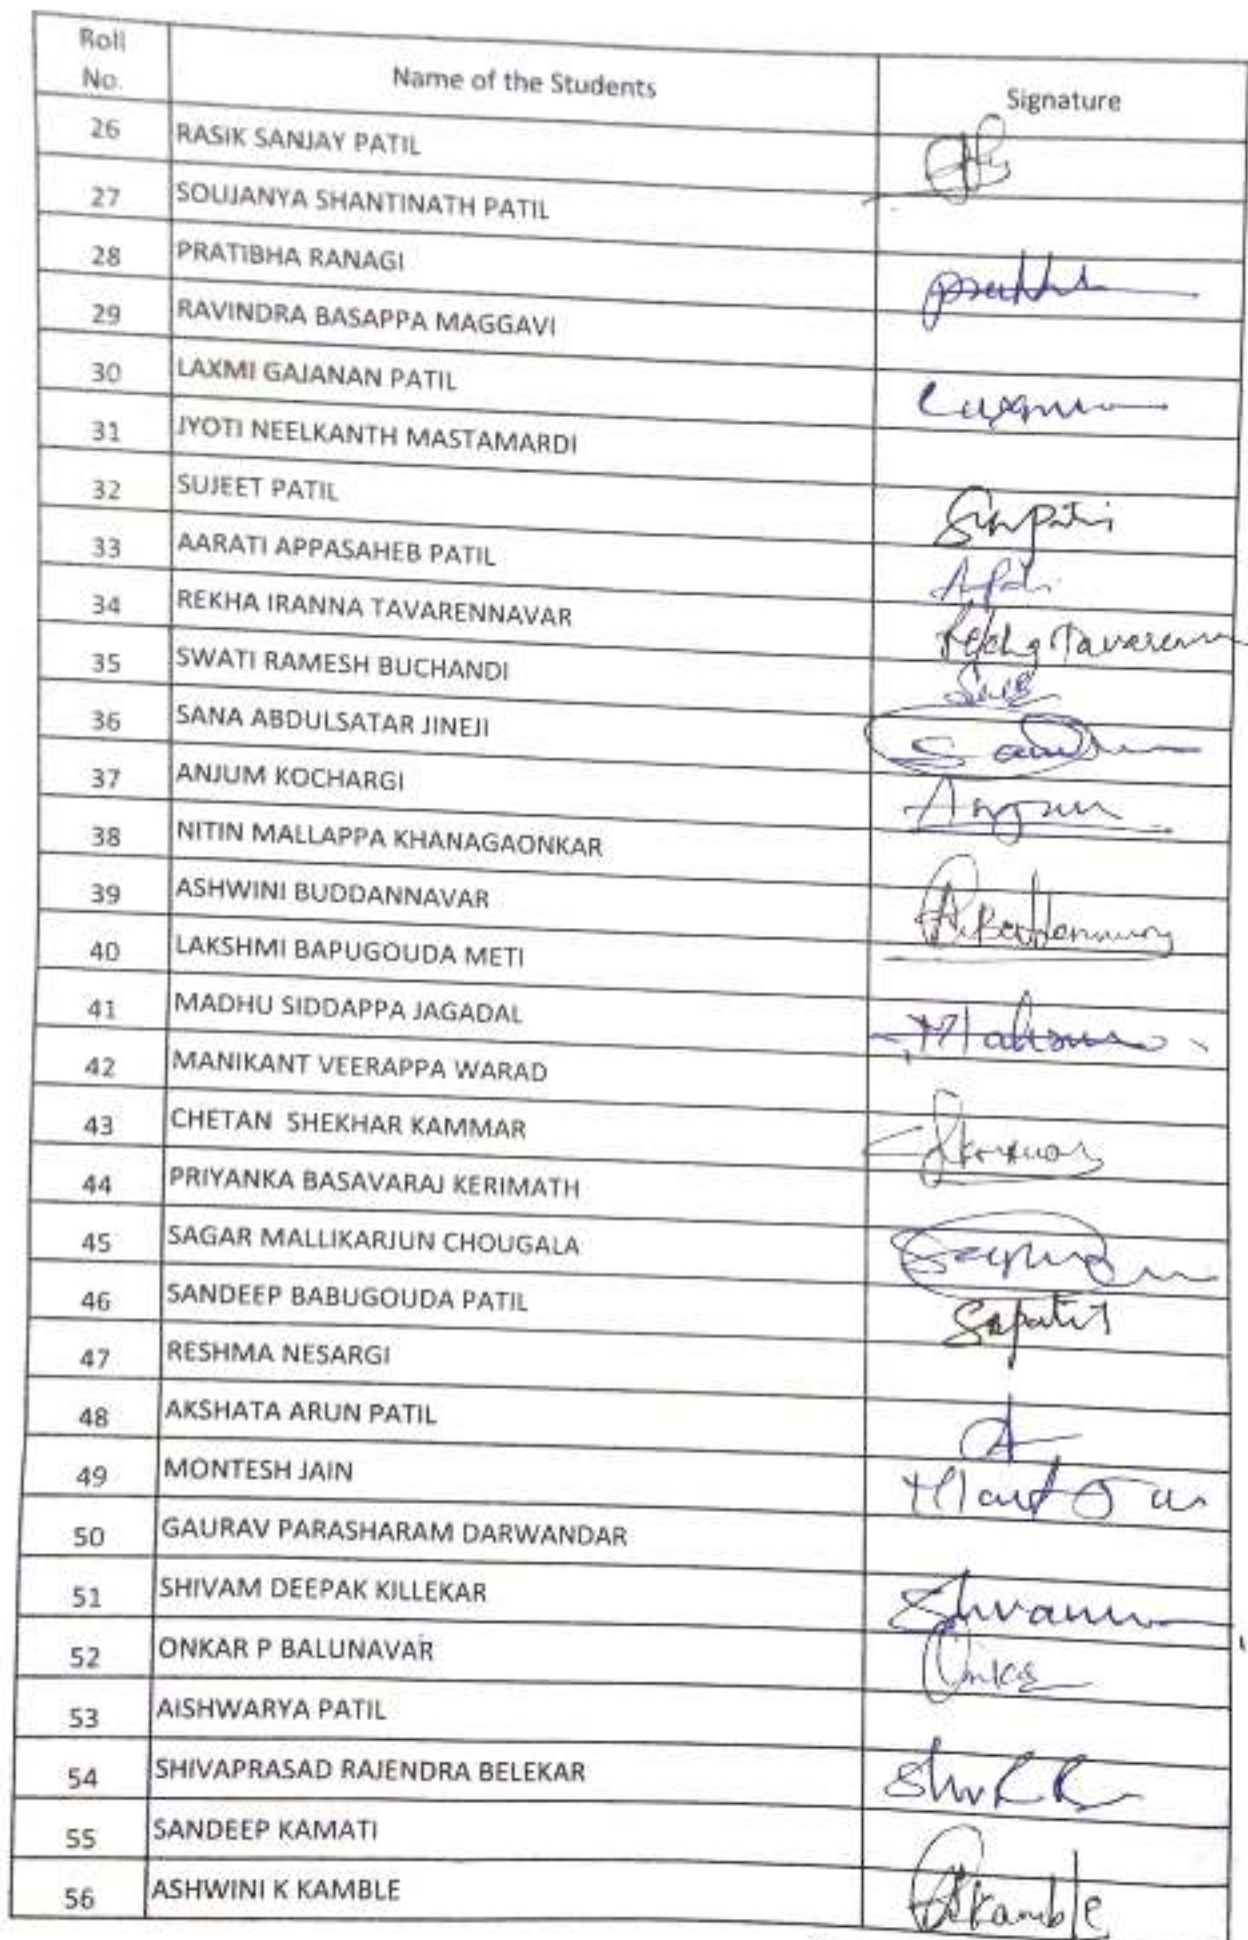 Roll No. Name of the Students Signature
26 RASIK SANJAY PATIL
27 SOUJANYA SHANTINATH PATIL
28 PRATIBHA RANAGI
29 RAVINDRA BASAPPA MAGGAVI
30 LAXMI GAJANAN PATIL
31 JYOTI NEELKANTH MASTAMARDI
32 SUJEET PATIL
33 AARATI APPASAHEB PATIL
34 REKHA IRANNA TAVARENNAVAR
35 SWATI RAMESH BUCHANDI
36 SANA ABDULSATAR JINEJI
37 ANJUM KOCHARGI
38 NITIN MALLAPPA KHANAGAONKAR
39 ASHWINI BUDDANNAVAR
40 LAKSHMI BAPUGOUDA METI
41 MADHU SIDDAPPA JAGADAL
42 MANIKANT VEERAPPA WARAD
43 CHETAN SHEKHAR KAMMAR
44 PRIYANKA BASAVARAJ KERIMATH
45 SAGAR MALLIKARJUN CHOUGALA
46 SANDEEP BABUGOUDA PATIL Sapatil
47 RESHMA NESARGI
48 AKSHATA ARUN PATIL
49 MONTESH JAIN
50 GAURAV PARASHARAM DARWANDAR
51 SHIVAM DEEPAK KILLEKAR
52 ONKAR P BALUNAVAR
53 AISHWARYA PATIL
54 SHIVAPRASAD RAJENDRA BELEKAR
55 SANDEEP KAMATI
56 ASHWINI K KAMBLE Akamble